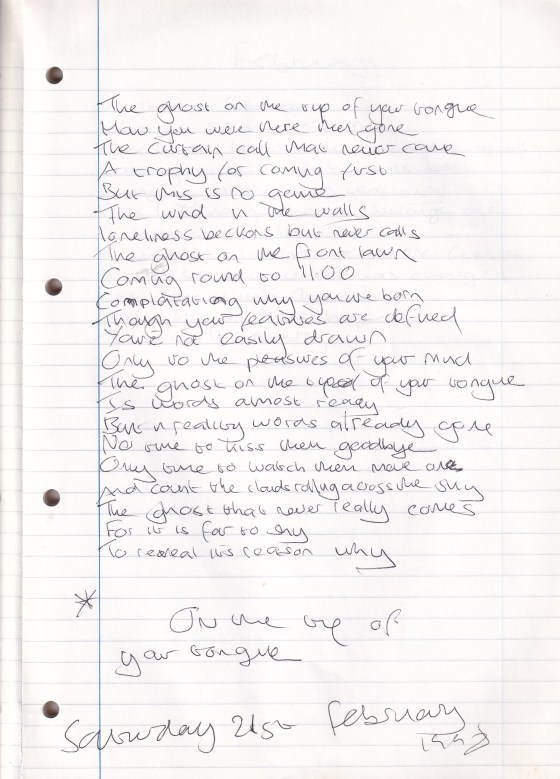 The ghost on the tip of your tongue
How you were there then gone
The curtain call that never came
A trophy for coming first
But this is no game
The wind in the walls
loneliness beckons but never calls
The ghost on the front lawn
Coming round to 11:00
why you were born
Though your features are defined
You're not easily drawn
Only to the of your mind
The ghost on the of your tongue
Is words almost ready
But in reality words already gone
No time to kiss them goodbye
Only time to watch them move
And count the clouds rolling across the sky
The ghost that never really comes
For it is far to shy
To reveal it's reason why
*
On the tip of
your tongue
Saturday 21st February